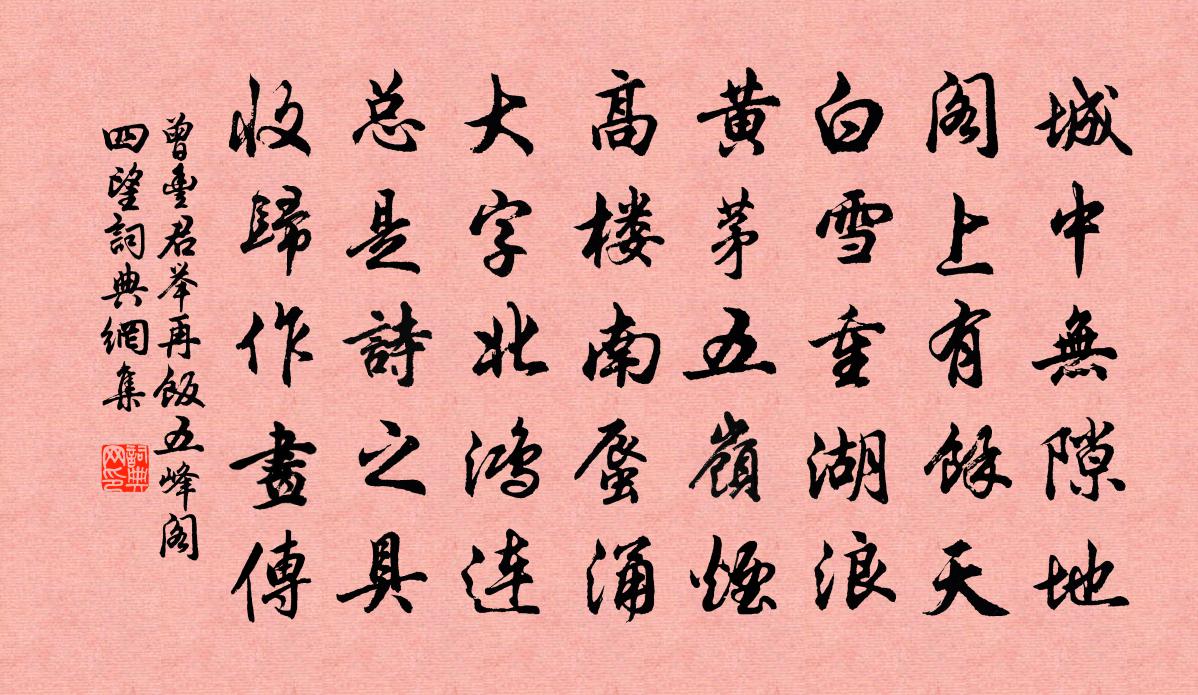 城中無隙地
閣上有餘天
白雪重湖浪
黄茅五嶺煙
高楼南蜃涌
大字北鸿连
总是詩之具
收歸作畫傳
曾豊君举再飯五峰阁
四望詞典網集
詞典網印